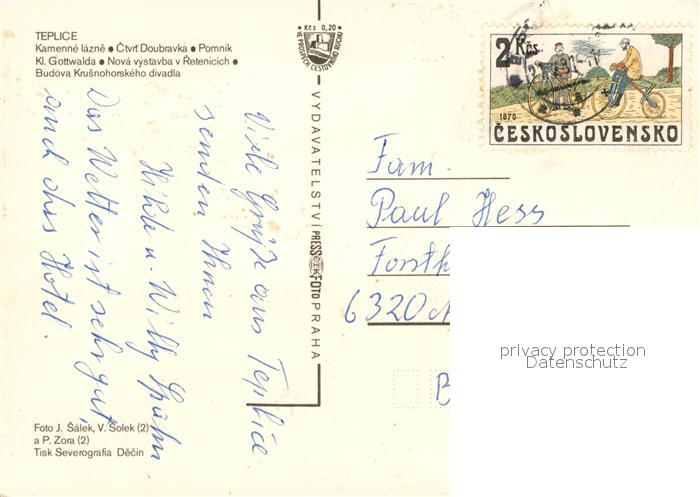 TEPLICE
Kamenné lázně ● Čtvrť Doubravka ● Pomník
Kl. Gottwalda ● Nová výstavba v Řetenicích ●
Budova Krušnohorského divadla
Viele Grüße aus Teplice
senden Ihnen
Hilde u. Willy
Das Wetter ist sehr gut,
auch das Hotel.
Foto J. Šálek, V. Šolek (2)
a P. Zora (2)
Tisk Severografia Děčín
Kčs 0,20
VE PROSPĚCH CESTOVNÍHO RUCHU
VYDAVATELSTVÍ PRESSFOTO PRAHA
2 Kčs
1870
ČESKOSLOVENSKO
Fam.
Paul Hess
Forsth
6320
B
privacy protection
Datenschutz